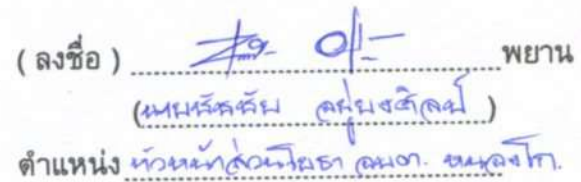 ( ลงชื่อ ) พยาน
(นายชัยชัย อยู่ยงศิลป์ )
ตำแหน่ง หัวหน้าส่วนโยธา อบต. หนองโก.